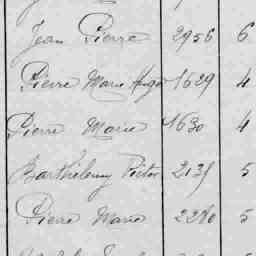 Jean Pierre 2956 6
Pierre Marie Hugo 1629 4
Pierre Marie 1630 4
Barthélemy Victor 2135 5
Pierre Marie 2280 5